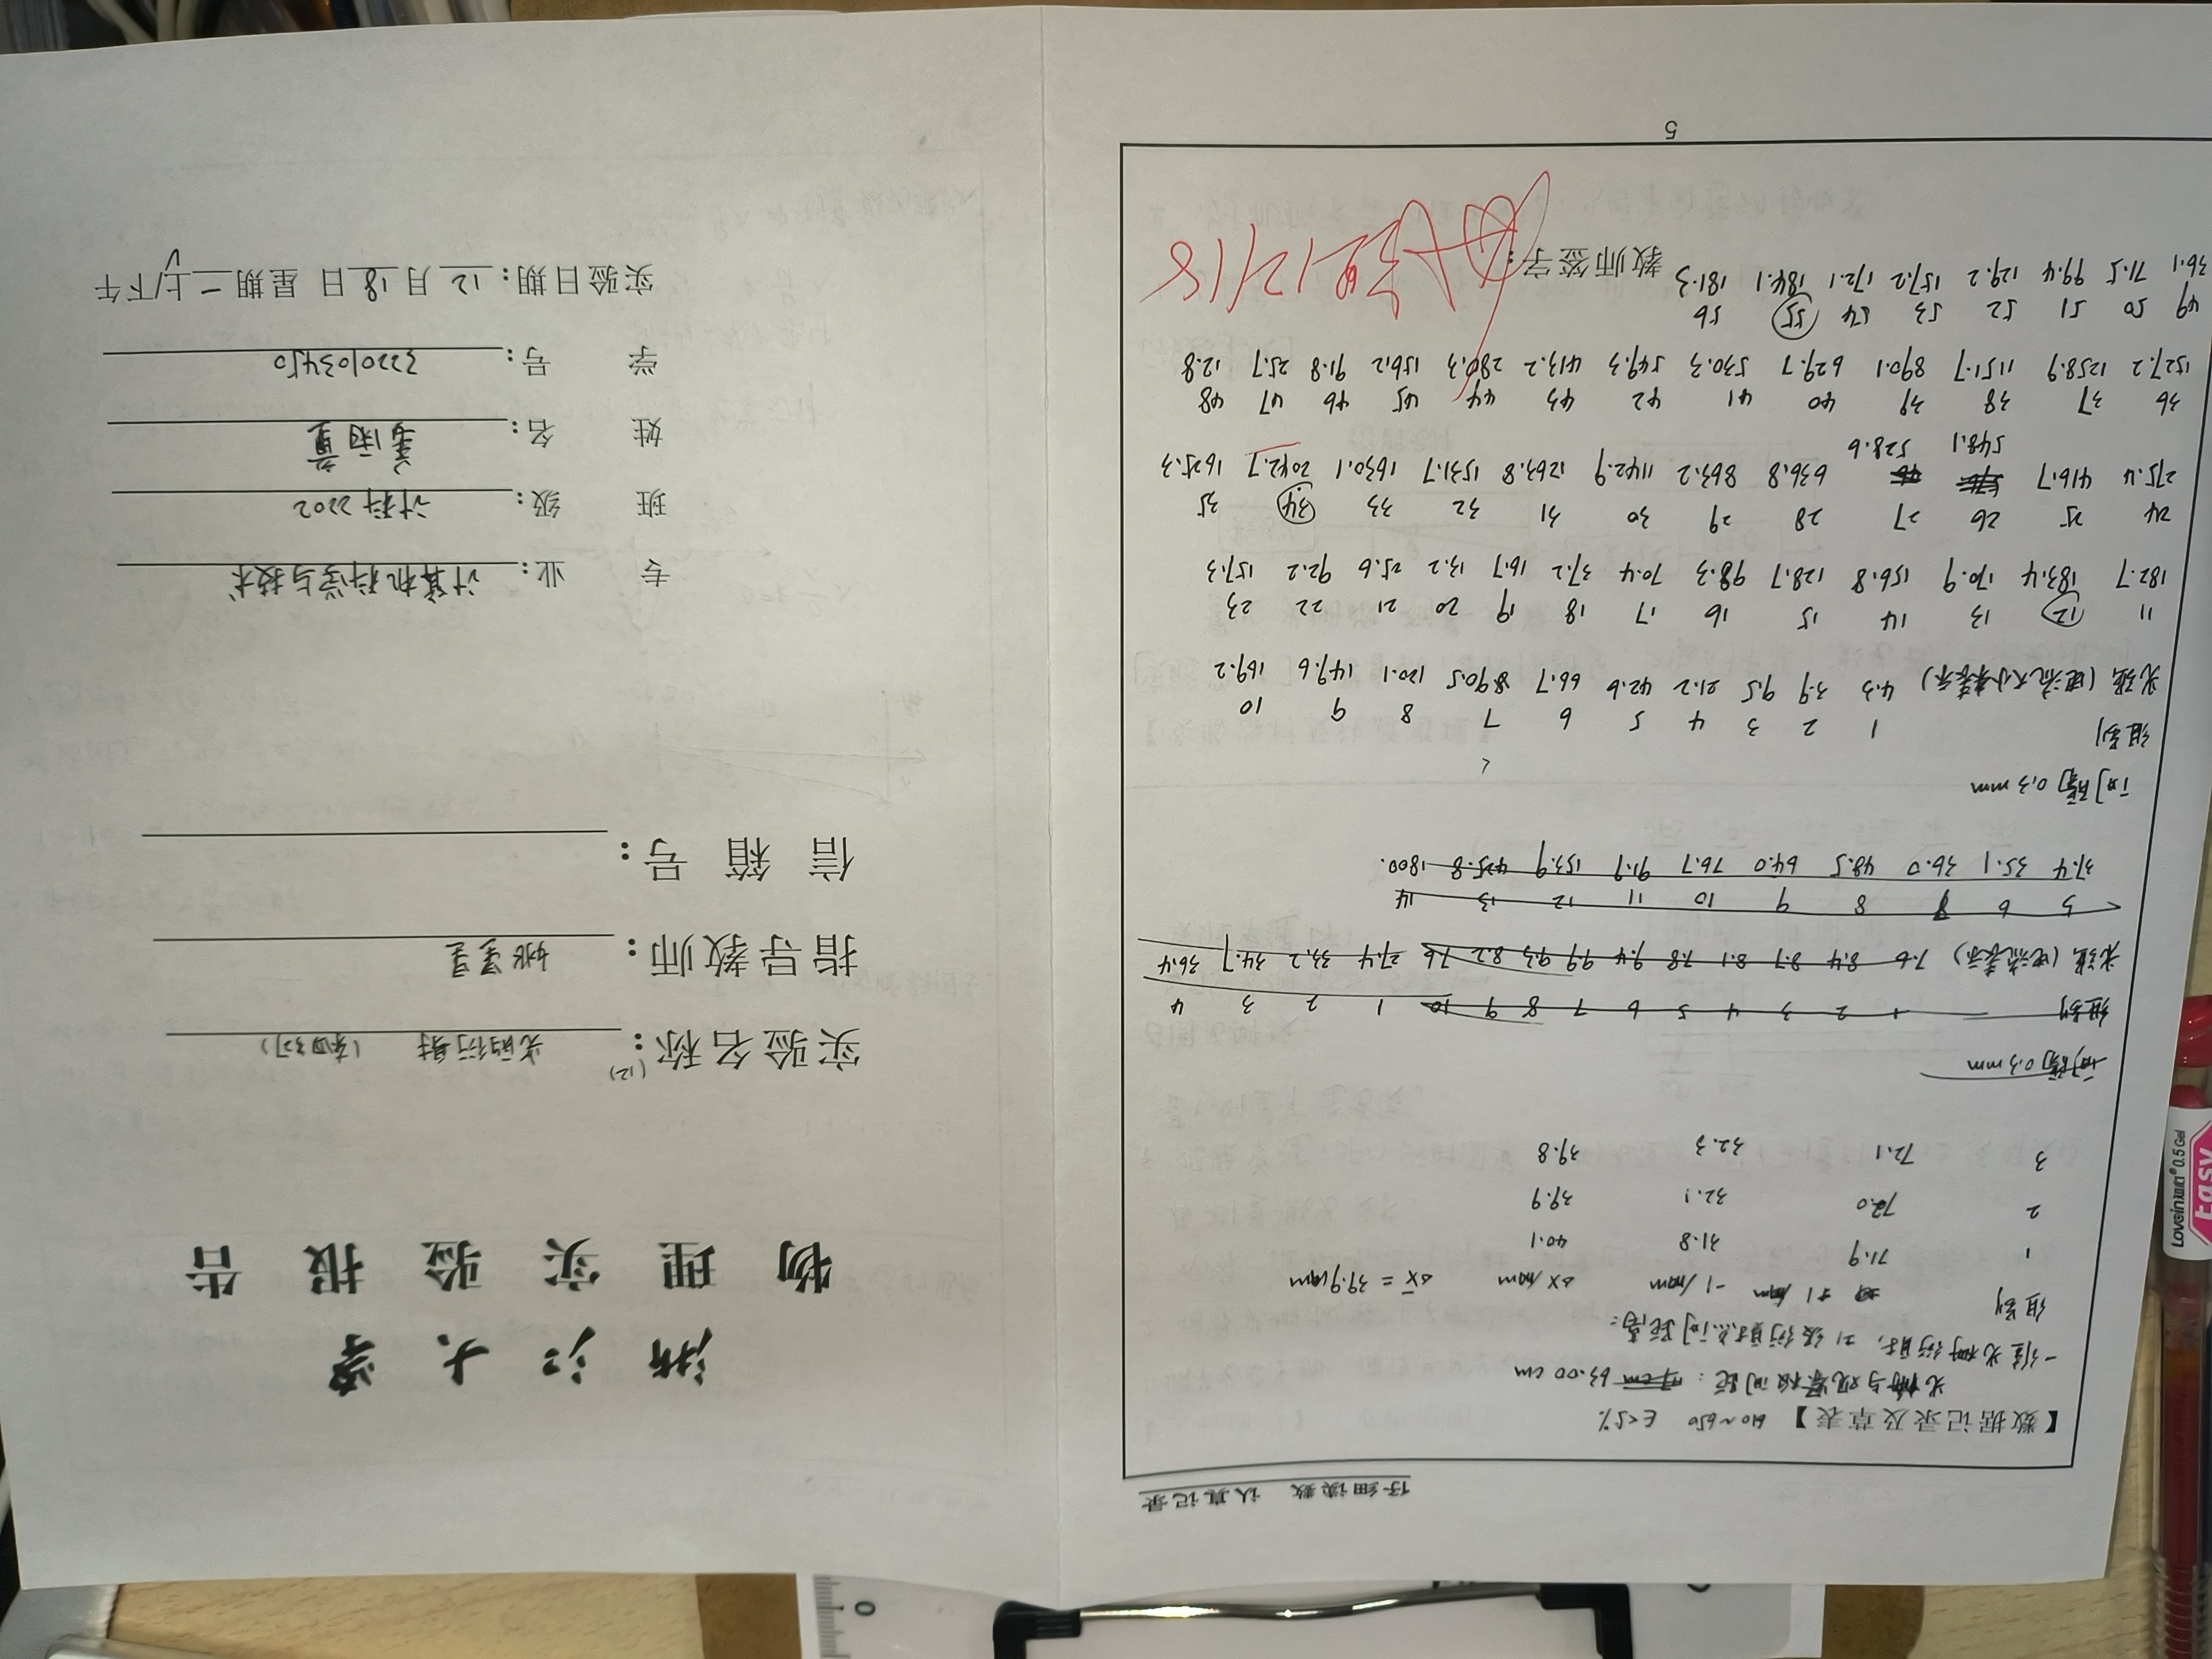 仔细读数 认真记录
【数据记录及草表】 610~650 E<5%
光栅与观察板间距: 63.00 cm
一维光栅衍射, ±1 级衍射点间距离:
组别 +1 /mm -1 /mm Δx /mm Δx̄ = 39.9 mm
1 71.9 31.8 40.1
2 72.0 32.1 39.9
3 72.1 32.3 39.8
间隔 0.3 mm
组别 1 2 3 4 5 6 7 8 9 10 1 2 3 4
光强 (电流表示) 7.6 8.4 8.7 8.1 7.8 9.4 9.9 9.3 8.2 7.6 27.4 33.2 34.7 36.4
5 6 7 8 9 10 11 12 13 14
37.4 35.1 36.0 48.5 64.0 76.7 91.9 153.9 425.8 1800.
间隔 0.3 mm
组别 1 2 3 4 5 6 7 8 9 10
光强 (电流大小来表示) 4.3 3.9 9.5 21.2 42.6 66.7 90.5 120.1 149.6 169.2
11 12 13 14 15 16 17 18 19 20 21 22 23
182.7 183.4 170.9 156.8 128.7 98.3 70.4 37.2 16.7 13.2 25.6 92.2 157.3
24 25 26 27 28 29 30 31 32 33 34 35
275.4 416.7 636.8 863.2 1142.9 1263.8 1531.7 1630.1 2042.7 1625.3
548.1 528.6
36 37 38 39 40 41 42 43 44 45 46 47 48
1527.2 1258.9 1151.7 890.1 629.7 530.3 549.3 413.2 280.3 156.2 91.8 25.7 12.8
49 50 51 52 53 54 55 56
36.1 71.5 99.4 129.2 157.2 172.1 184.1 181.3
教师签字: 12/18
5
浙江大学
物理实验报告
实验名称: (12) 光的衍射
指导教师: 姚星星
信箱号:
专业: 计算机科学与技术
班级: 计科2202
姓名: 姜雨童
学号: 3220103450
实验日期: 12 月 18 日 星期二上/下午
Lovein 0.5 Gel
Easy
0